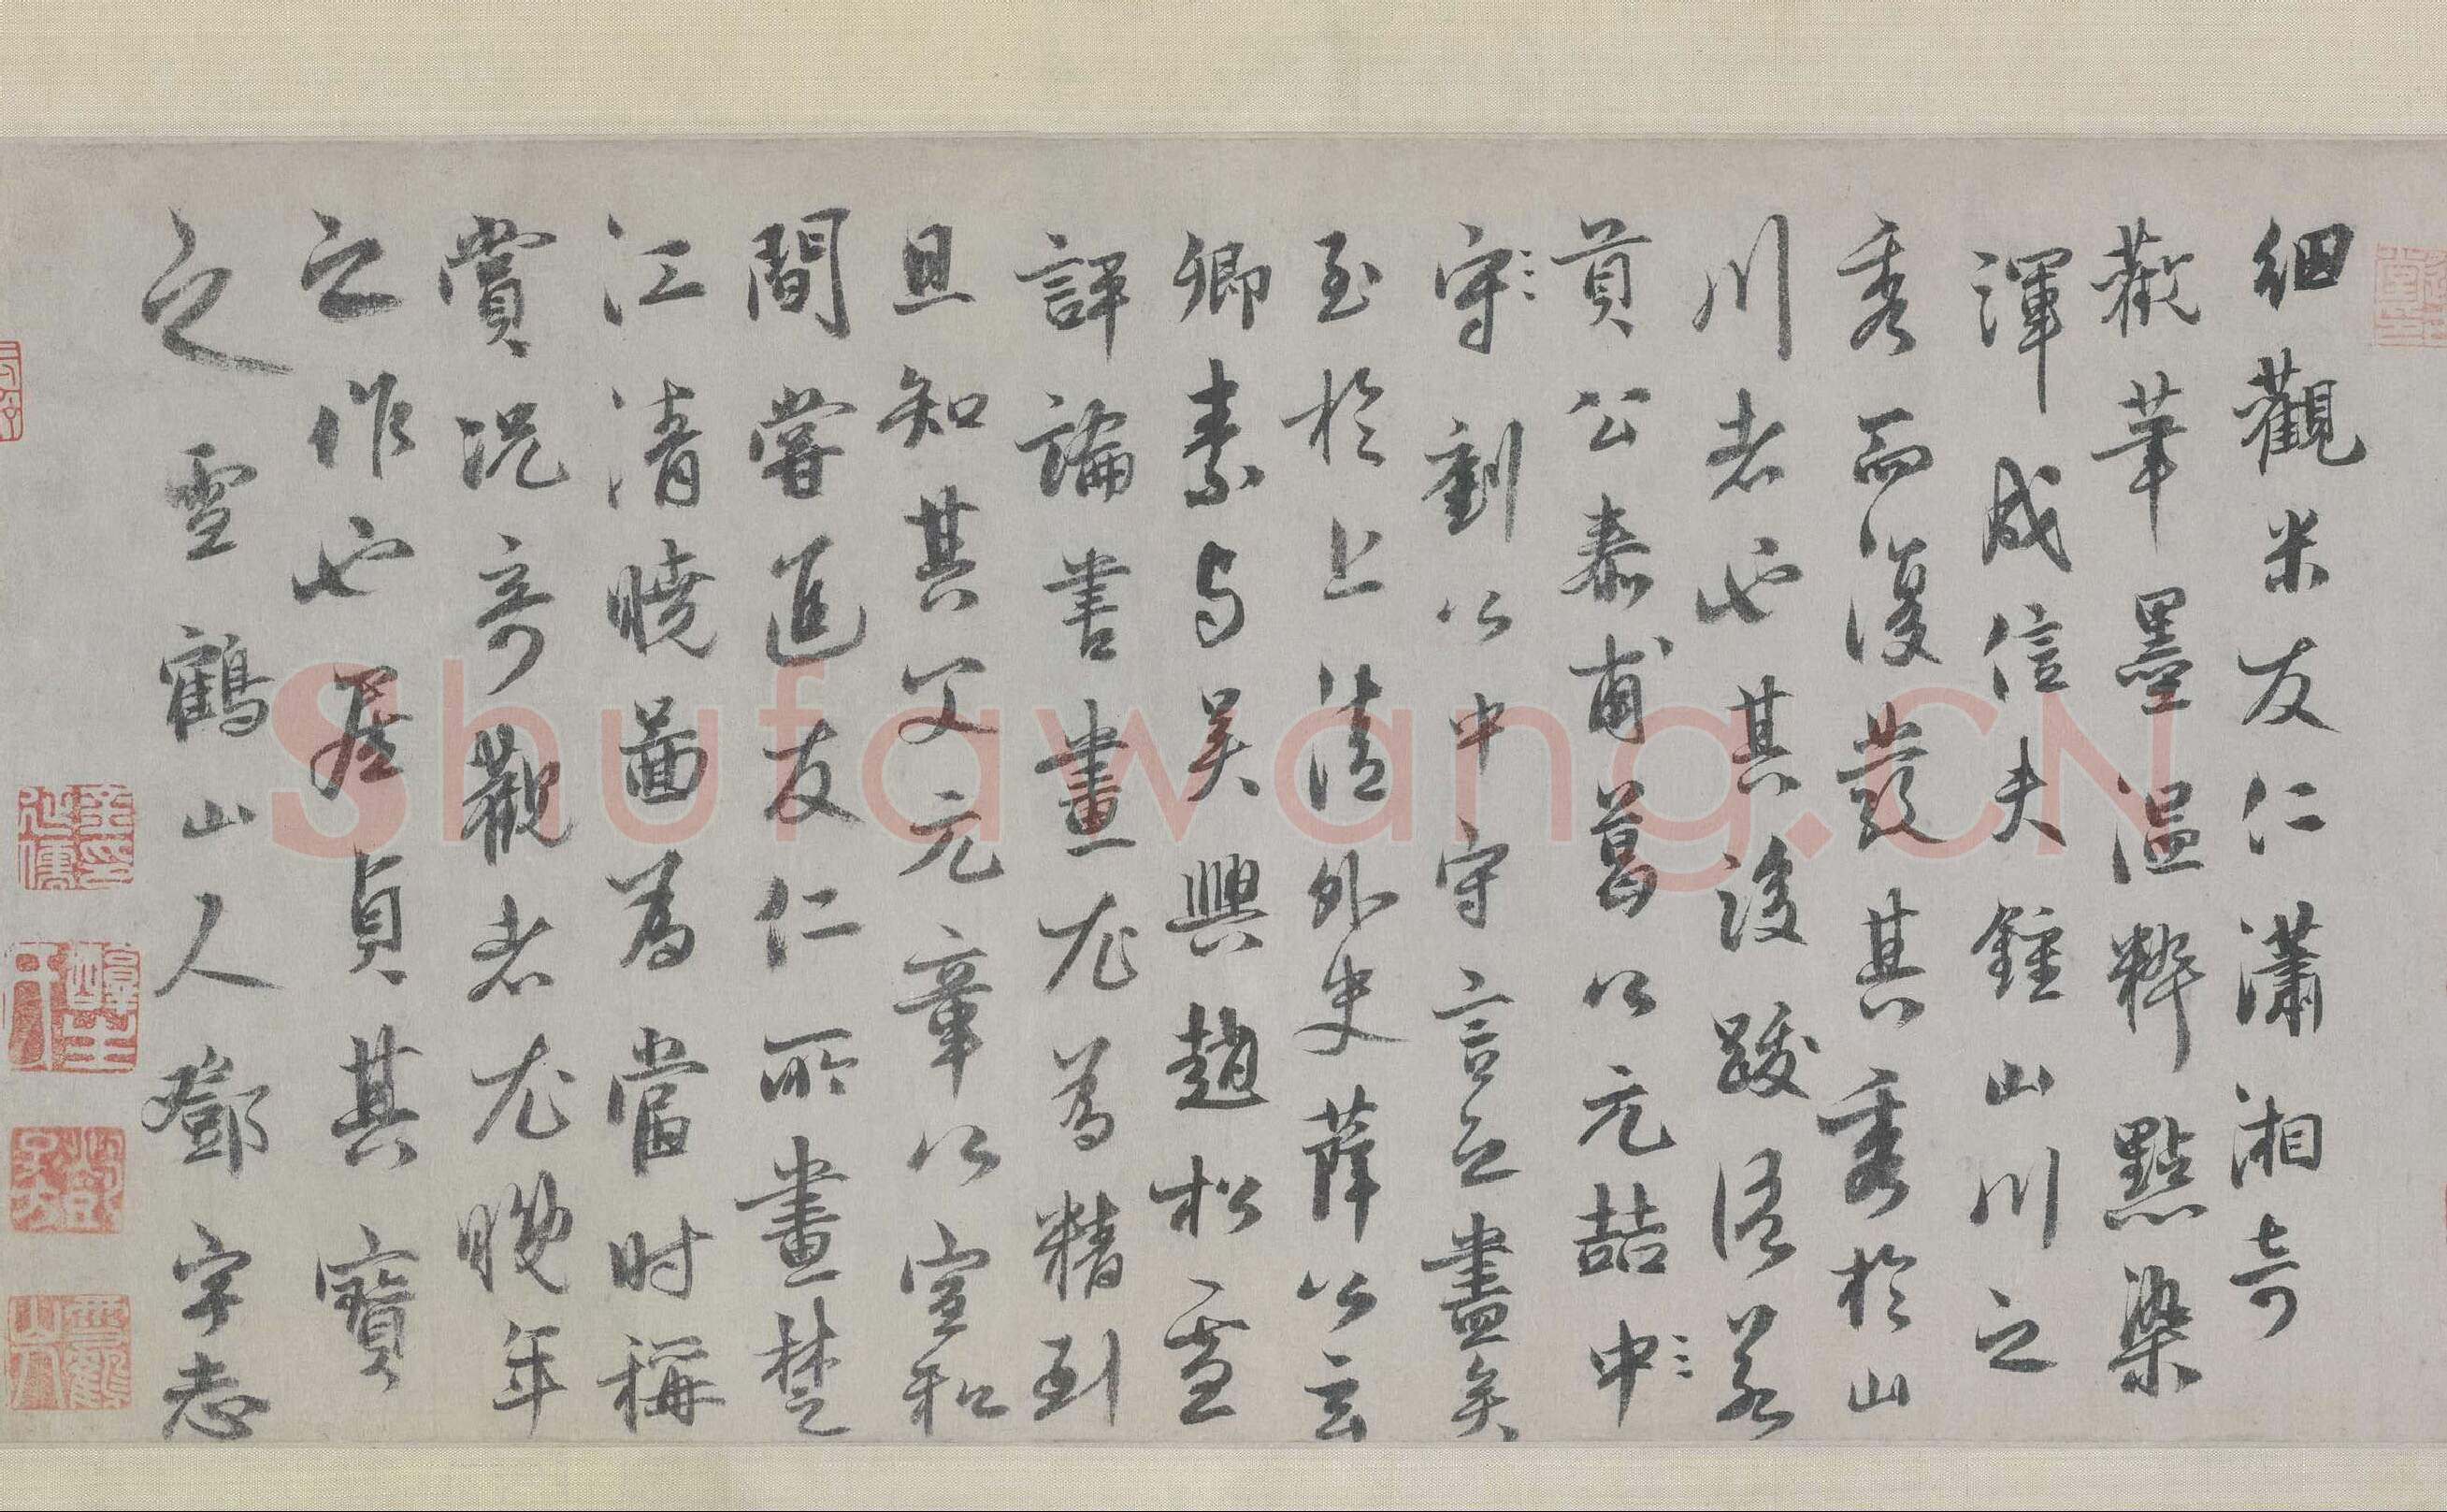 細觀米友仁瀟湘奇
觀筆墨温粹點染
渾成信夫鍾山川之
秀而復發其秀於山
川者也其後跋語若
貢公泰甫葛公元喆中
守劉公中守言之盡矣
至於上清外史薛公玄
卿素与吴興趙松雪
評論書畫尤為精到
且知其父元章公宣和
間嘗進友仁所畫楚
江清曉圖為當时稱
賞况奇觀者尤晚年
之作也居貞其寳
之雪鶴山人鄧宇志
Shufawang.CN